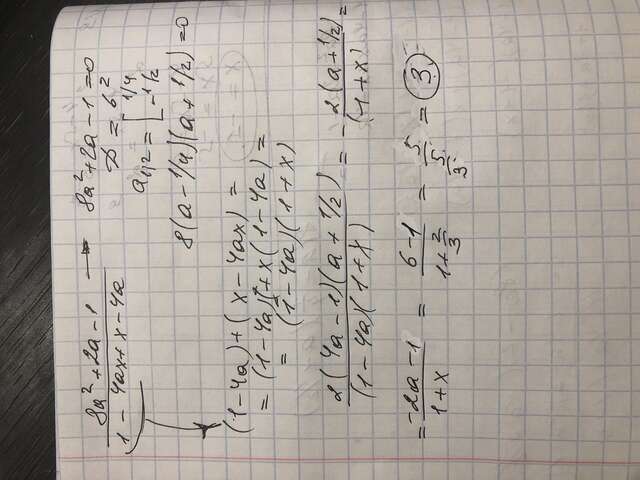 8a² + 2a - 1 / 1 - 4ax + x - 4a → 8a² + 2a - 1 = 0
D = 6²
a₁,₂ = [ 1/4
-1/2
8(a - 1/4)(a + 1/2) = 0
(1 - 4a) + (x - 4ax) =
= (1 - 4a) + x(1 - 4a) =
= (1 - 4a)(1 + x)
2(4a - 1)(a + 1/2) / (1 - 4a)(1 + x) = - 2(a + 1/2) / (1 + x) =
= -2a - 1 / 1 + x = 6 - 1 / 1 + 2/3 = 5 / 5/3 = 3